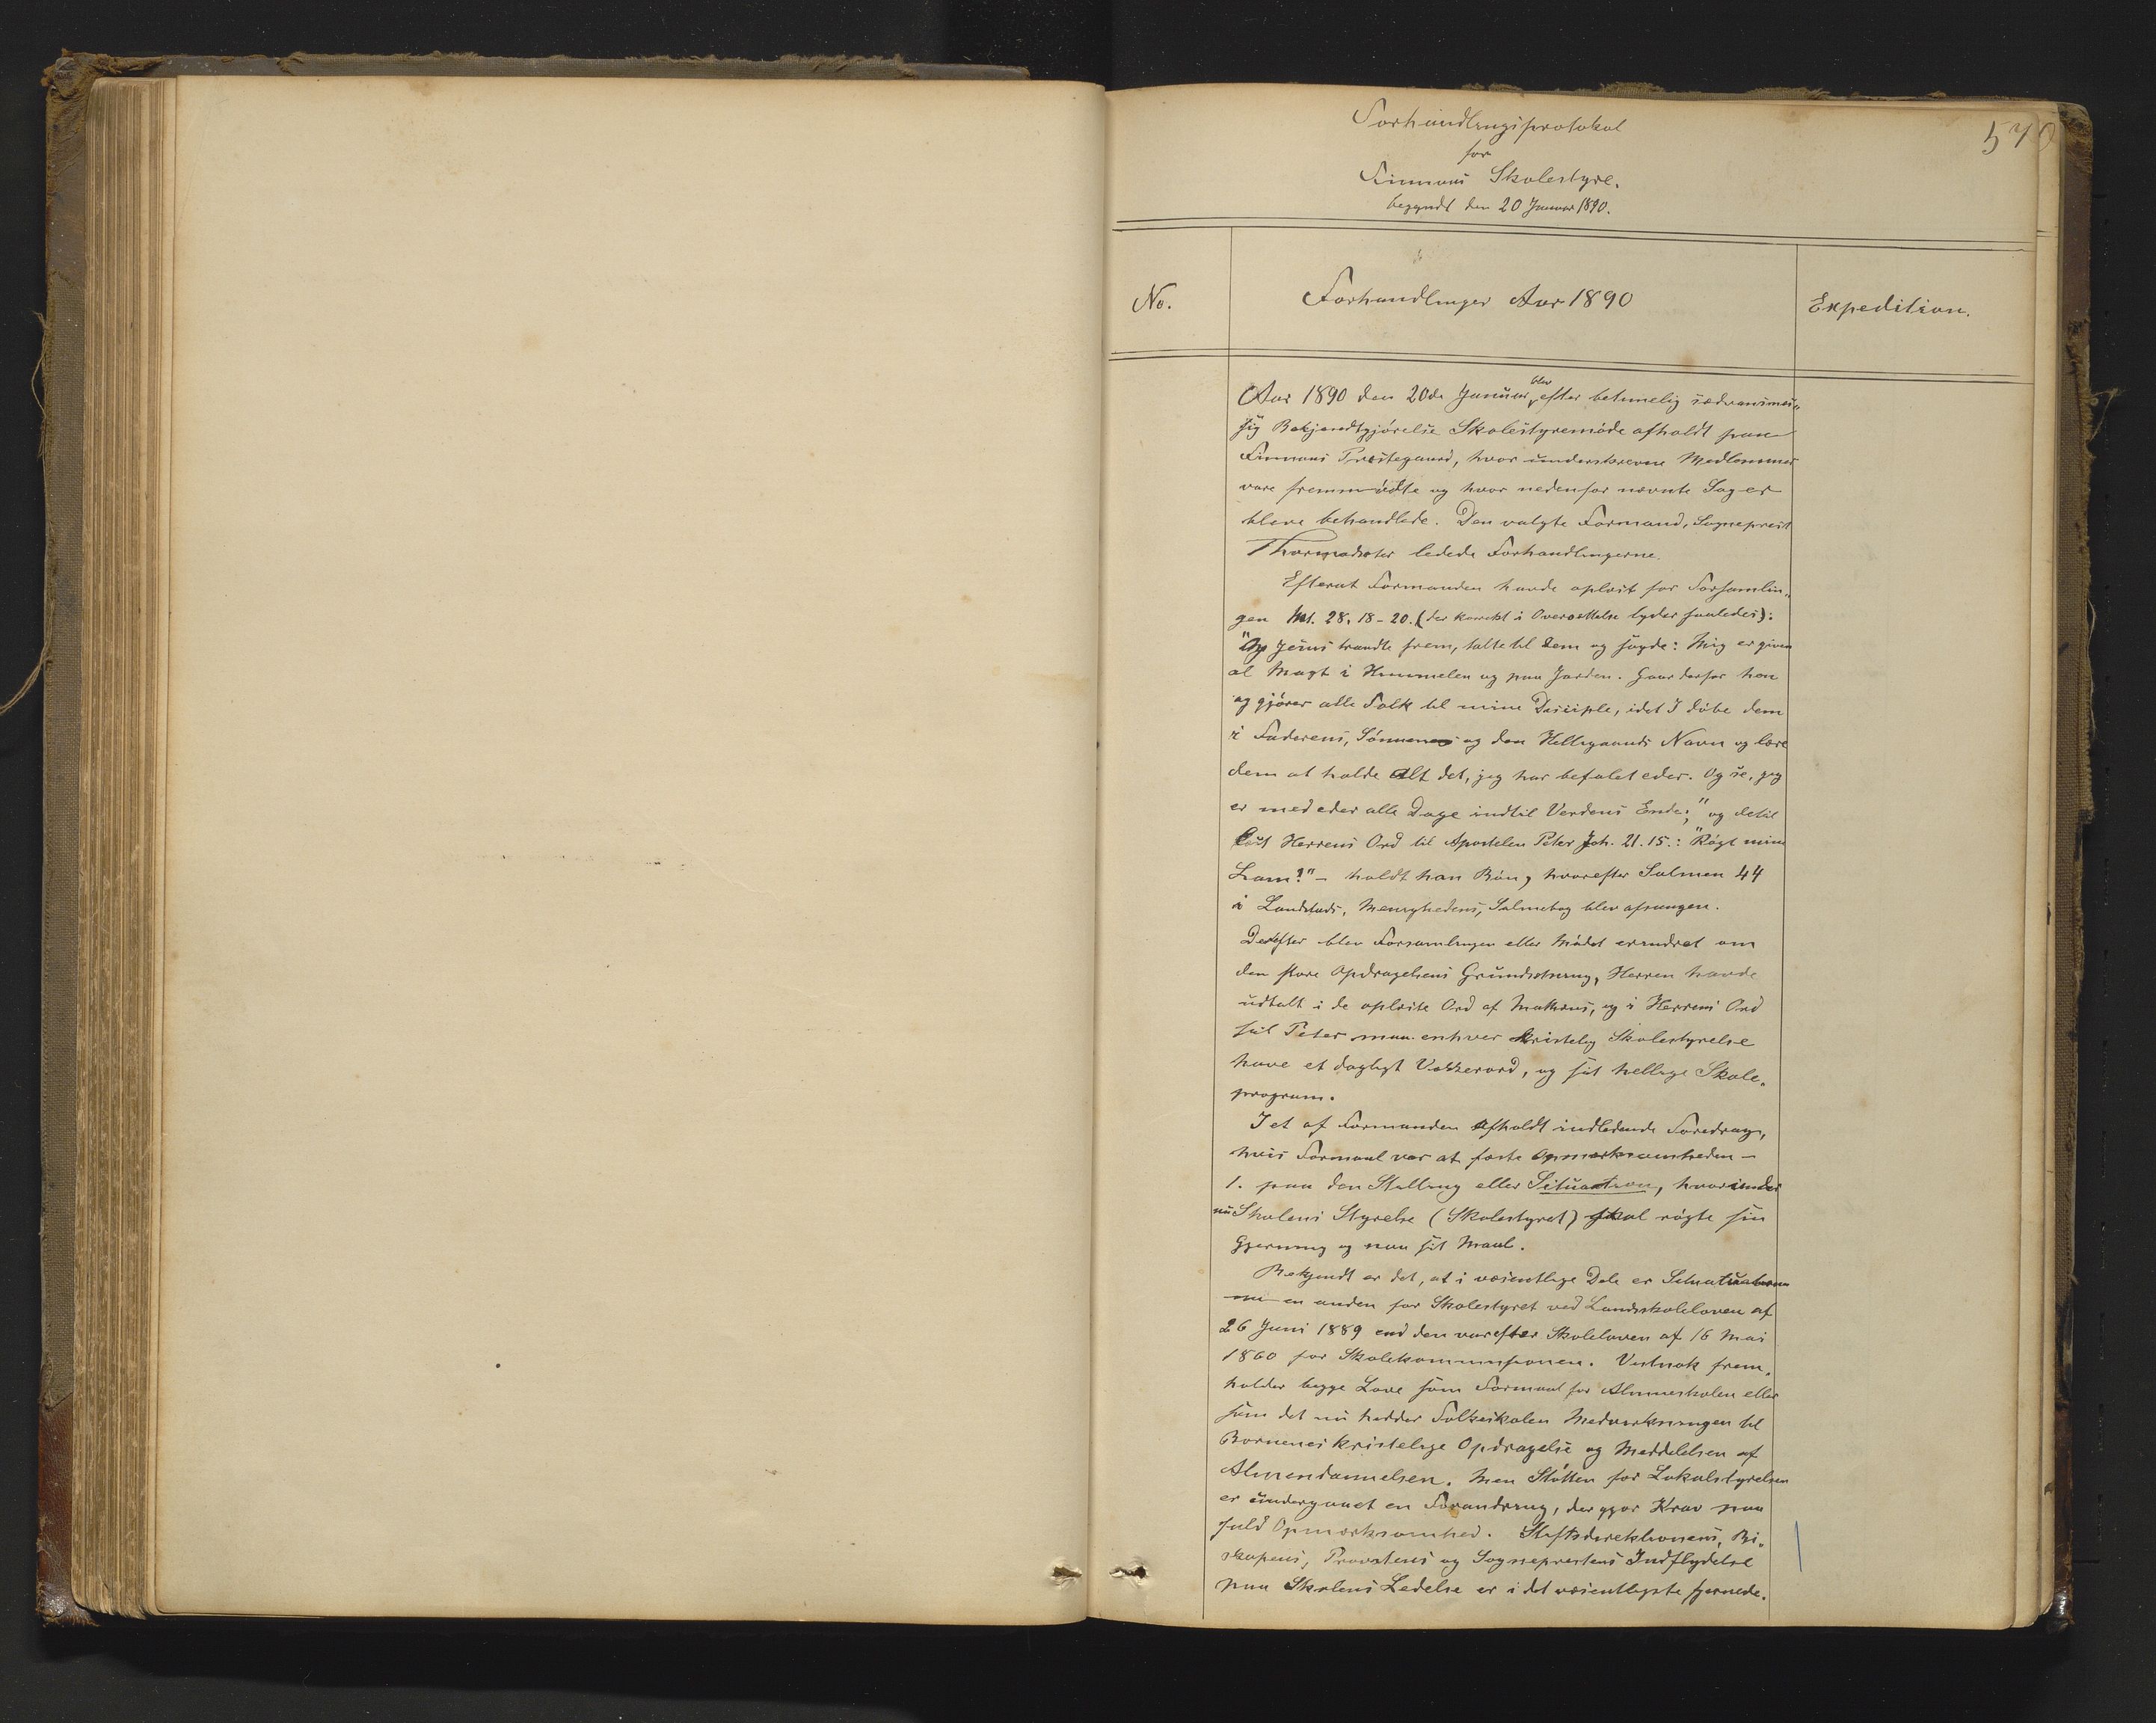 570
Forhandlingsprotokol
for
Finnaas Skolestyre.
begyndt den 20 Januar 1890.
No.
Forhandlinger Aar 1890
Expedition.
Aar 1890 den 20de Januar blev efter betimelig sædvansmæs„
sig Bekjendtgjørelse Skolestyremøde afholdt paa
Finnaas Præstegaard, hvor underskrevne Medlemmer
vare fremmødte og hvor nedenfor nævnte Sager
bleve behandlede. Den valgte Formand, Sogneprest
Thormodsæter ledede Forhandlingerne.
Efterat Formanden havde oplæst for Forsamlin„
gen Mt. 28, 18-20. (der korrekt i Oversættelse lyder saaledes):
"Og Jesus traadte frem, talte til dem og sagde: Mig er given
al Magt i Himmelen og paa Jorden. Gaar derfor hen
og gjører alle Folk til mine Disciple, idet I døbe dem
i Faderens, Sønnens og den Helligaands Navn og lære
dem at holde Alt det, jeg har befalet eder. Og se, jeg
er med eder alle Dage indtil Verdens Ende;" og dertil
Herrens Ord til Apostelen Peter Joh. 21. 15.: "Røgt mine
Lam!" - holdt han Bøn, hvorefter Salmen 44
i Landstads, Menighedens, Salmebog blev afsungen.
Derefter blev Forsamlingen eller Mødet erindret om
den store Opdragelsens Grundsætning, Herren havde
udtalt i de oplæste Ord af Mathæus, og i Herrens Ord
til Peter maa enhver kristelig Skolestyrelse
have et dagligt Vækkerord, og sit hellige Skole„
program.
I et af Formanden afholdt indledende Foredrag,
hvis Formaal var at fæste Opmærksomheden -
1. paa den Stilling eller Situation, hvorunder
nu Skolens Styrelse (Skolestyret) skal røgte sin
Gjerning og naa sit Maal.
Bekjendt er det, at i væsentlige Dele er Situationen
en anden for Skolestyret ved Landsskoleloven af
26 Juni 1889 end den var efter Skoleloven af 16 Mai
1860 for Skolekommissionen. Vistnok frem„
holder begge Love som Formaal for Almueskolen eller
som det nu hedder Folkeskolen Medvirkningen til
Børnenes kristelige Opdragelse og Meddelelsen af
Almendannelsen. Men Støtten for Lokalstyrelsen
er undergaaet en Forandring, der gjør Krav paa
fuld Opmærksomhed. Stiftsdirektionens, Bi„
skopens, Provstens og Sogneprestens Indflydelse
paa Skolens Ledelse er i det væsentligste fjernede.